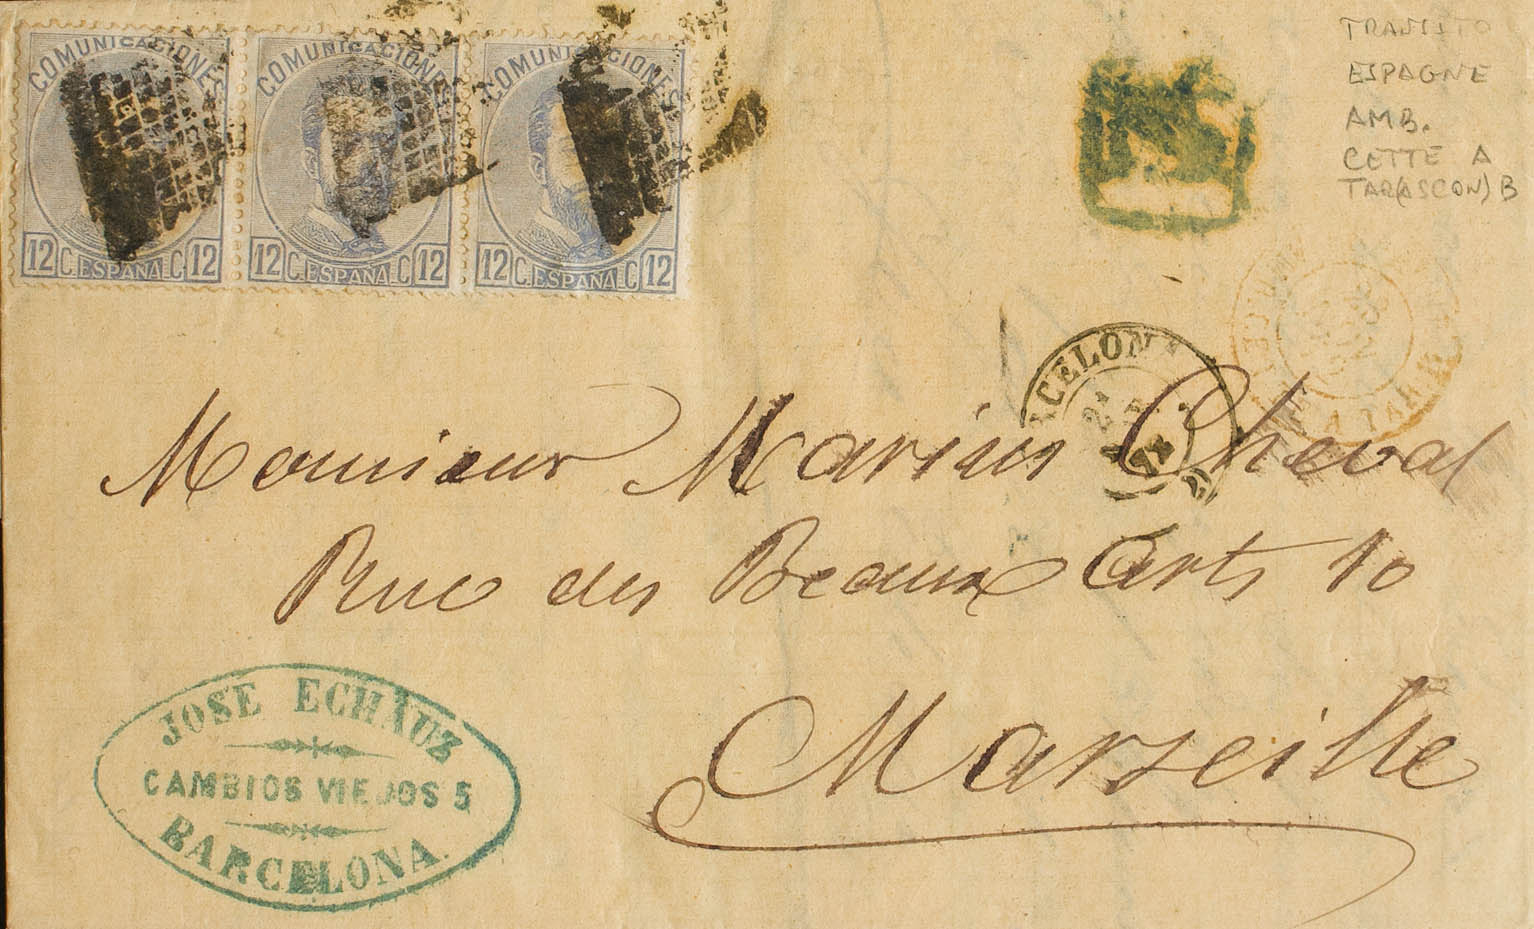 COMUNICACIONES
12 C. ESPAÑA C 12
COMUNICACIONES
12 C. ESPAÑA C 12
COMUNICACIONES
12 C. ESPAÑA C 12
TRANSITO
ESPAGNE
AMB.
CETTE A
TAR(ASCON) B
BARCELONA
Monsieur Marius Cheval
Rue des Beaux Arts 10
Marseille
JOSÉ ECHÀUZ
CAMBIOS VIEJOS 5
BARCELONA.